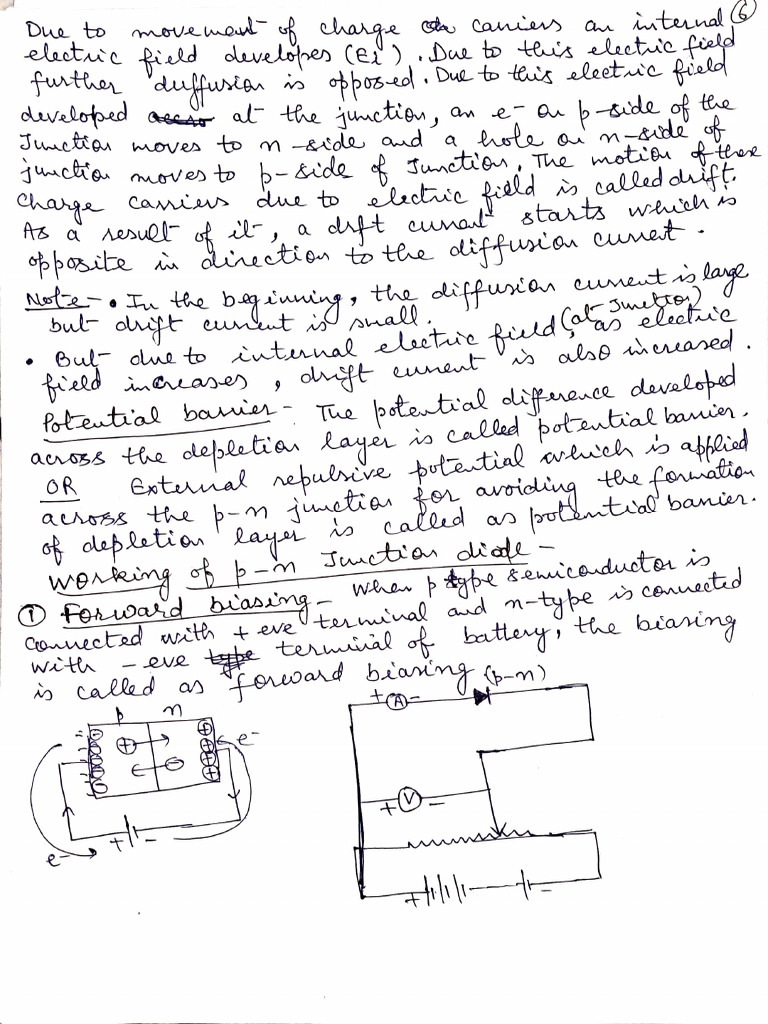 6
Due to movement of charge carriers an internal
electric field developes (Ei). Due to this electric field
further duffusion is opposed. Due to this electric field
developed at the junction, an e- on p-side of the
Junction moves to n-side and a hole on n-side of
junction moves to p-side of Junction. The motion of these
charge carriers due to electric field is called drift.
As a result of it, a drft current starts which is
opposite in direction to the diffusion current.
Note - • In the beginning, the diffusion current is large
but drift current is small.
• But due to internal electric field (at Junction), as electric
field increases, drift current is also increased.
Potential barrier - The potential difference developed
across the depletion layer is called potential barrier.
OR External repulsive potential which is applied
across the p-n junction for avoiding the formation
of depletion layer is called as potential barrier.
Working of p-n Junction diode -
① Forward biasing - When p type semiconductor is
connected with +eve terminal and n-type is connected
with -eve terminal of battery, the biasing
is called as forward biasing
p n
e-
+ -
e-
(p-n)
+ A -
+ V -
+ -